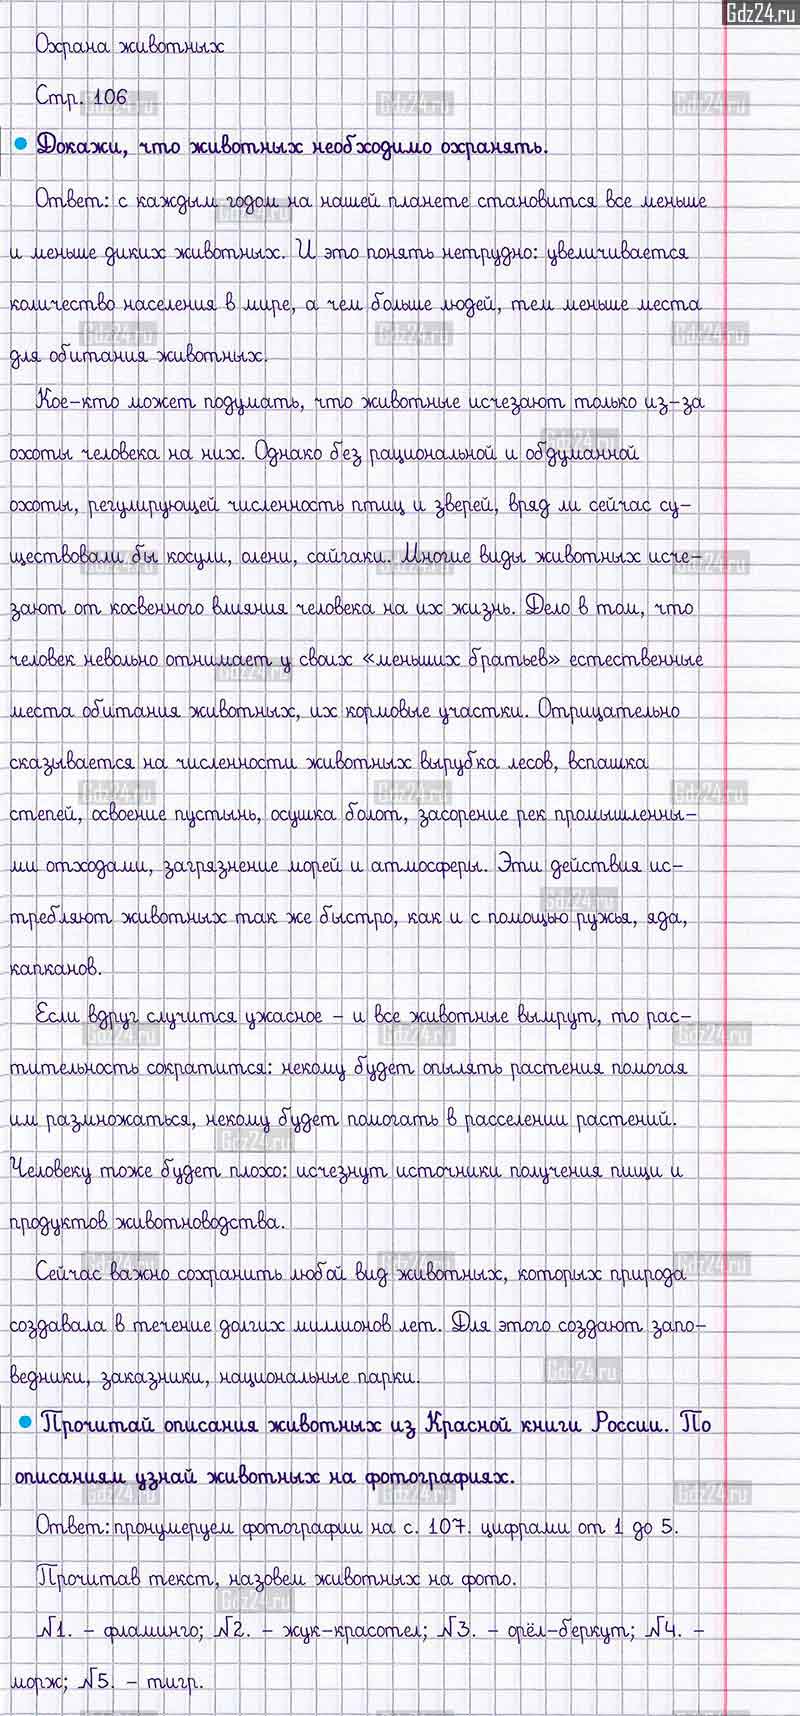 Gdz24.ru
Охрана животных
Стр. 106
• Докажи, что животных необходимо охранять.
Ответ: с каждым годом на нашей планете становится все меньше
и меньше диких животных. И это понять нетрудно: увеличивается
количество населения в мире, а чем больше людей, тем меньше места
для обитания животных.
Кое-кто может подумать, что животные исчезают только из-за
охоты человека на них. Однако без рациональной и обдуманной
охоты, регулирующей численность птиц и зверей, вряд ли сейчас су-
ществовали бы косули, олени, сайгаки. Многие виды животных исче-
зают от косвенного влияния человека на их жизнь. Дело в том, что
человек невольно отнимает у своих «меньших братьев» естественные
места обитания животных, их кормовые участки. Отрицательно
сказывается на численности животных вырубка лесов, вспашка
степей, освоение пустынь, осушка болот, засорение рек промышленны-
ми отходами, загрязнение морей и атмосферы. Эти действия ис-
требляют животных так же быстро, как и с помощью ружья, яда,
капканов.
Если вдруг случится ужасное – и все животные вымрут, то рас-
тительность сократится: некому будет опылять растения помогая
им размножаться, некому будет помогать в расселении растений.
Человеку тоже будет плохо: исчезнут источники получения пищи и
продуктов животноводства.
Сейчас важно сохранить любой вид животных, которых природа
создавала в течение долгих миллионов лет. Для этого создают запо-
ведники, заказники, национальные парки.
• Прочитай описания животных из Красной книги России. По
описаниям узнай животных на фотографиях.
Ответ: пронумеруем фотографии на с. 107. цифрами от 1 до 5.
Прочитав текст, назовем животных на фото.
№1. – фламинго; №2. – жук-красотел; №3. – орёл-беркут; №4. –
морж; №5. – тигр.